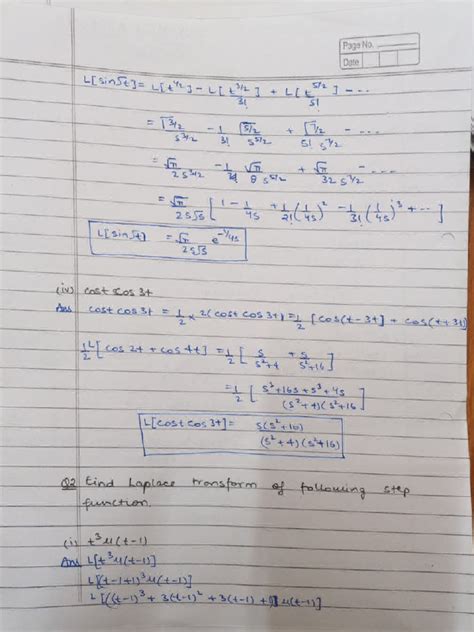 Page No.
Date
L[sin√t] = L[t^1/2] - L[t^3/2]/3! + L[t^5/2]/5! - ...
= Γ3/2 / s^3/2 - 1/3! Γ5/2 / s^5/2 + Γ7/2 / 5! s^7/2 - ...
= √π / 2s^3/2 - 1/8 √π / s^5/2 + √π / 32 s^7/2 - ...
= √π / 2s√s [ 1 - 1/4s + 1/2! (1/4s)^2 - 1/3! (1/4s)^3 + ... ]
L[sin√t] = √π / 2s√s e^-1/4s
(iv) cost cos3t
Ans cost cos3t = 1/2 × 2(cost cos3t) = 1/2 [cos(t-3t] + cos(t+3t)
1/2 L[cos2t + cos4t] = 1/2 [ s/s^2+4 + s/s^2+16 ]
= 1/2 [ s^3+16s+s^3+4s / (s^2+4)(s^2+16) ]
L[cost cos3t] = s(s^2+10) / (s^2+4)(s^2+16)
Q2 Find Laplace transform of following step
function.
(i) t^3 u(t-1)
Ans L[t^3 u(t-1)]
L[(t-1+1)^3 u(t-1)]
L[((t-1)^3 + 3(t-1)^2 + 3(t-1) + 1) u(t-1)]